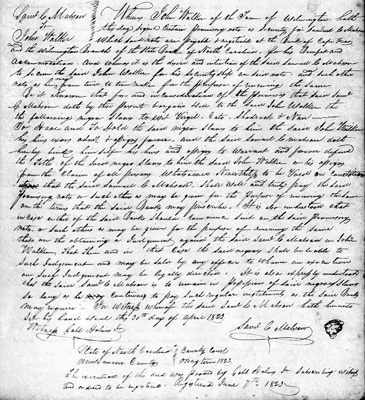 Saml. C. Mabson
to
John Walker
Whereas John Walker of the Town of Wilmington hath
this day signed a certain promissory note as Security for Samuel C. Mabson
which said note was negotiable & negotiated at the Bank of Cape Fear
and the Wilmington Branch of the State Bank of North Carolina for his
accommodation. And whereas it is the desire and intention of the said Samuel C. Mabson
to secure the said John Walker for his Securityship on said note and such other
note as he from time to time make for the purpose of renewing the same
Samuel C.
Mabson doth by this present bargain sell to the said John Walker
the following negro Slaves to wit Virgil, Cato, and
To Have and To Hold the said negro Slaves to him the said John Walker
his heirs and assigns forever, and the said Samuel C. Mabson doth
bind himself his heirs and assigns to Warrant and forever defend
the Title of the said negro Slaves to him the said John Walker or his assigns
from the claim of all persons Whatsoever Nevertheless to be Void on condition
that the said Samuel C. Mabson Shall Well and truly pay the said
promissory note or such others as may be given for the purpose of renewing the same
on the terms that the said Bank may prescribe. It is also understood that
in case either of the said Banks Should Commence Suit on the said promissory
note or Such others as may be given for the purpose of renewing the same
then on the obtaining a Judgment against the said Saml. C. Mabson or John
Walker, that then and in that case the said negroes Shall be liable to
such Judgment and may be sold by any officer to whom an execution
on such Judgement may be legally directed. It is also expressly understood
that the said Saml. C. Mabson is to remain in possession of said negroes Slaves
so long as he may continue to pay such regular instalments as the said Banks
may require. In testimony whereof the said Saml. C. Mabson hath hereunto
set his hand & seal the 30th day of April 1823
Witness Saml. C. Mabson
State of North Carolina County Court
New Hanover County May term 1823
The execution of this deed was proved by a Subscribing witness
and ordered to be registered. Registered June 7th 1823